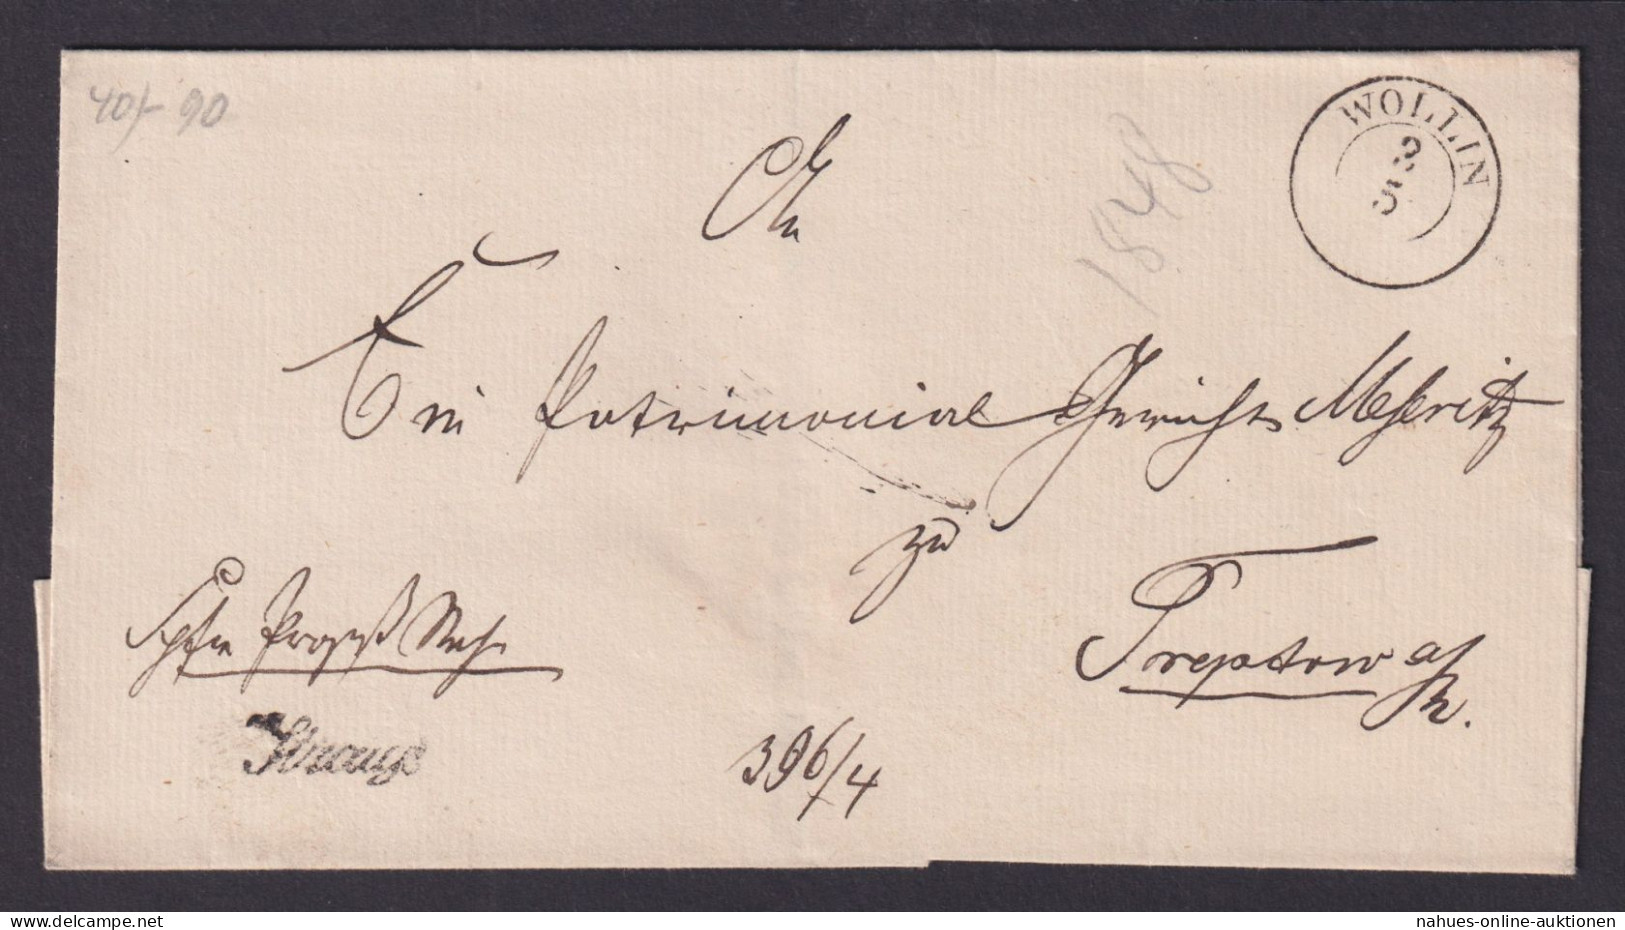 40/- 90
WOLLIN
3
5
1848
An
Ein Patrimonial Gericht Meseritz
zu
Treptow a/R.
396/4
www.delcampe.net
nahues-online-auktionen